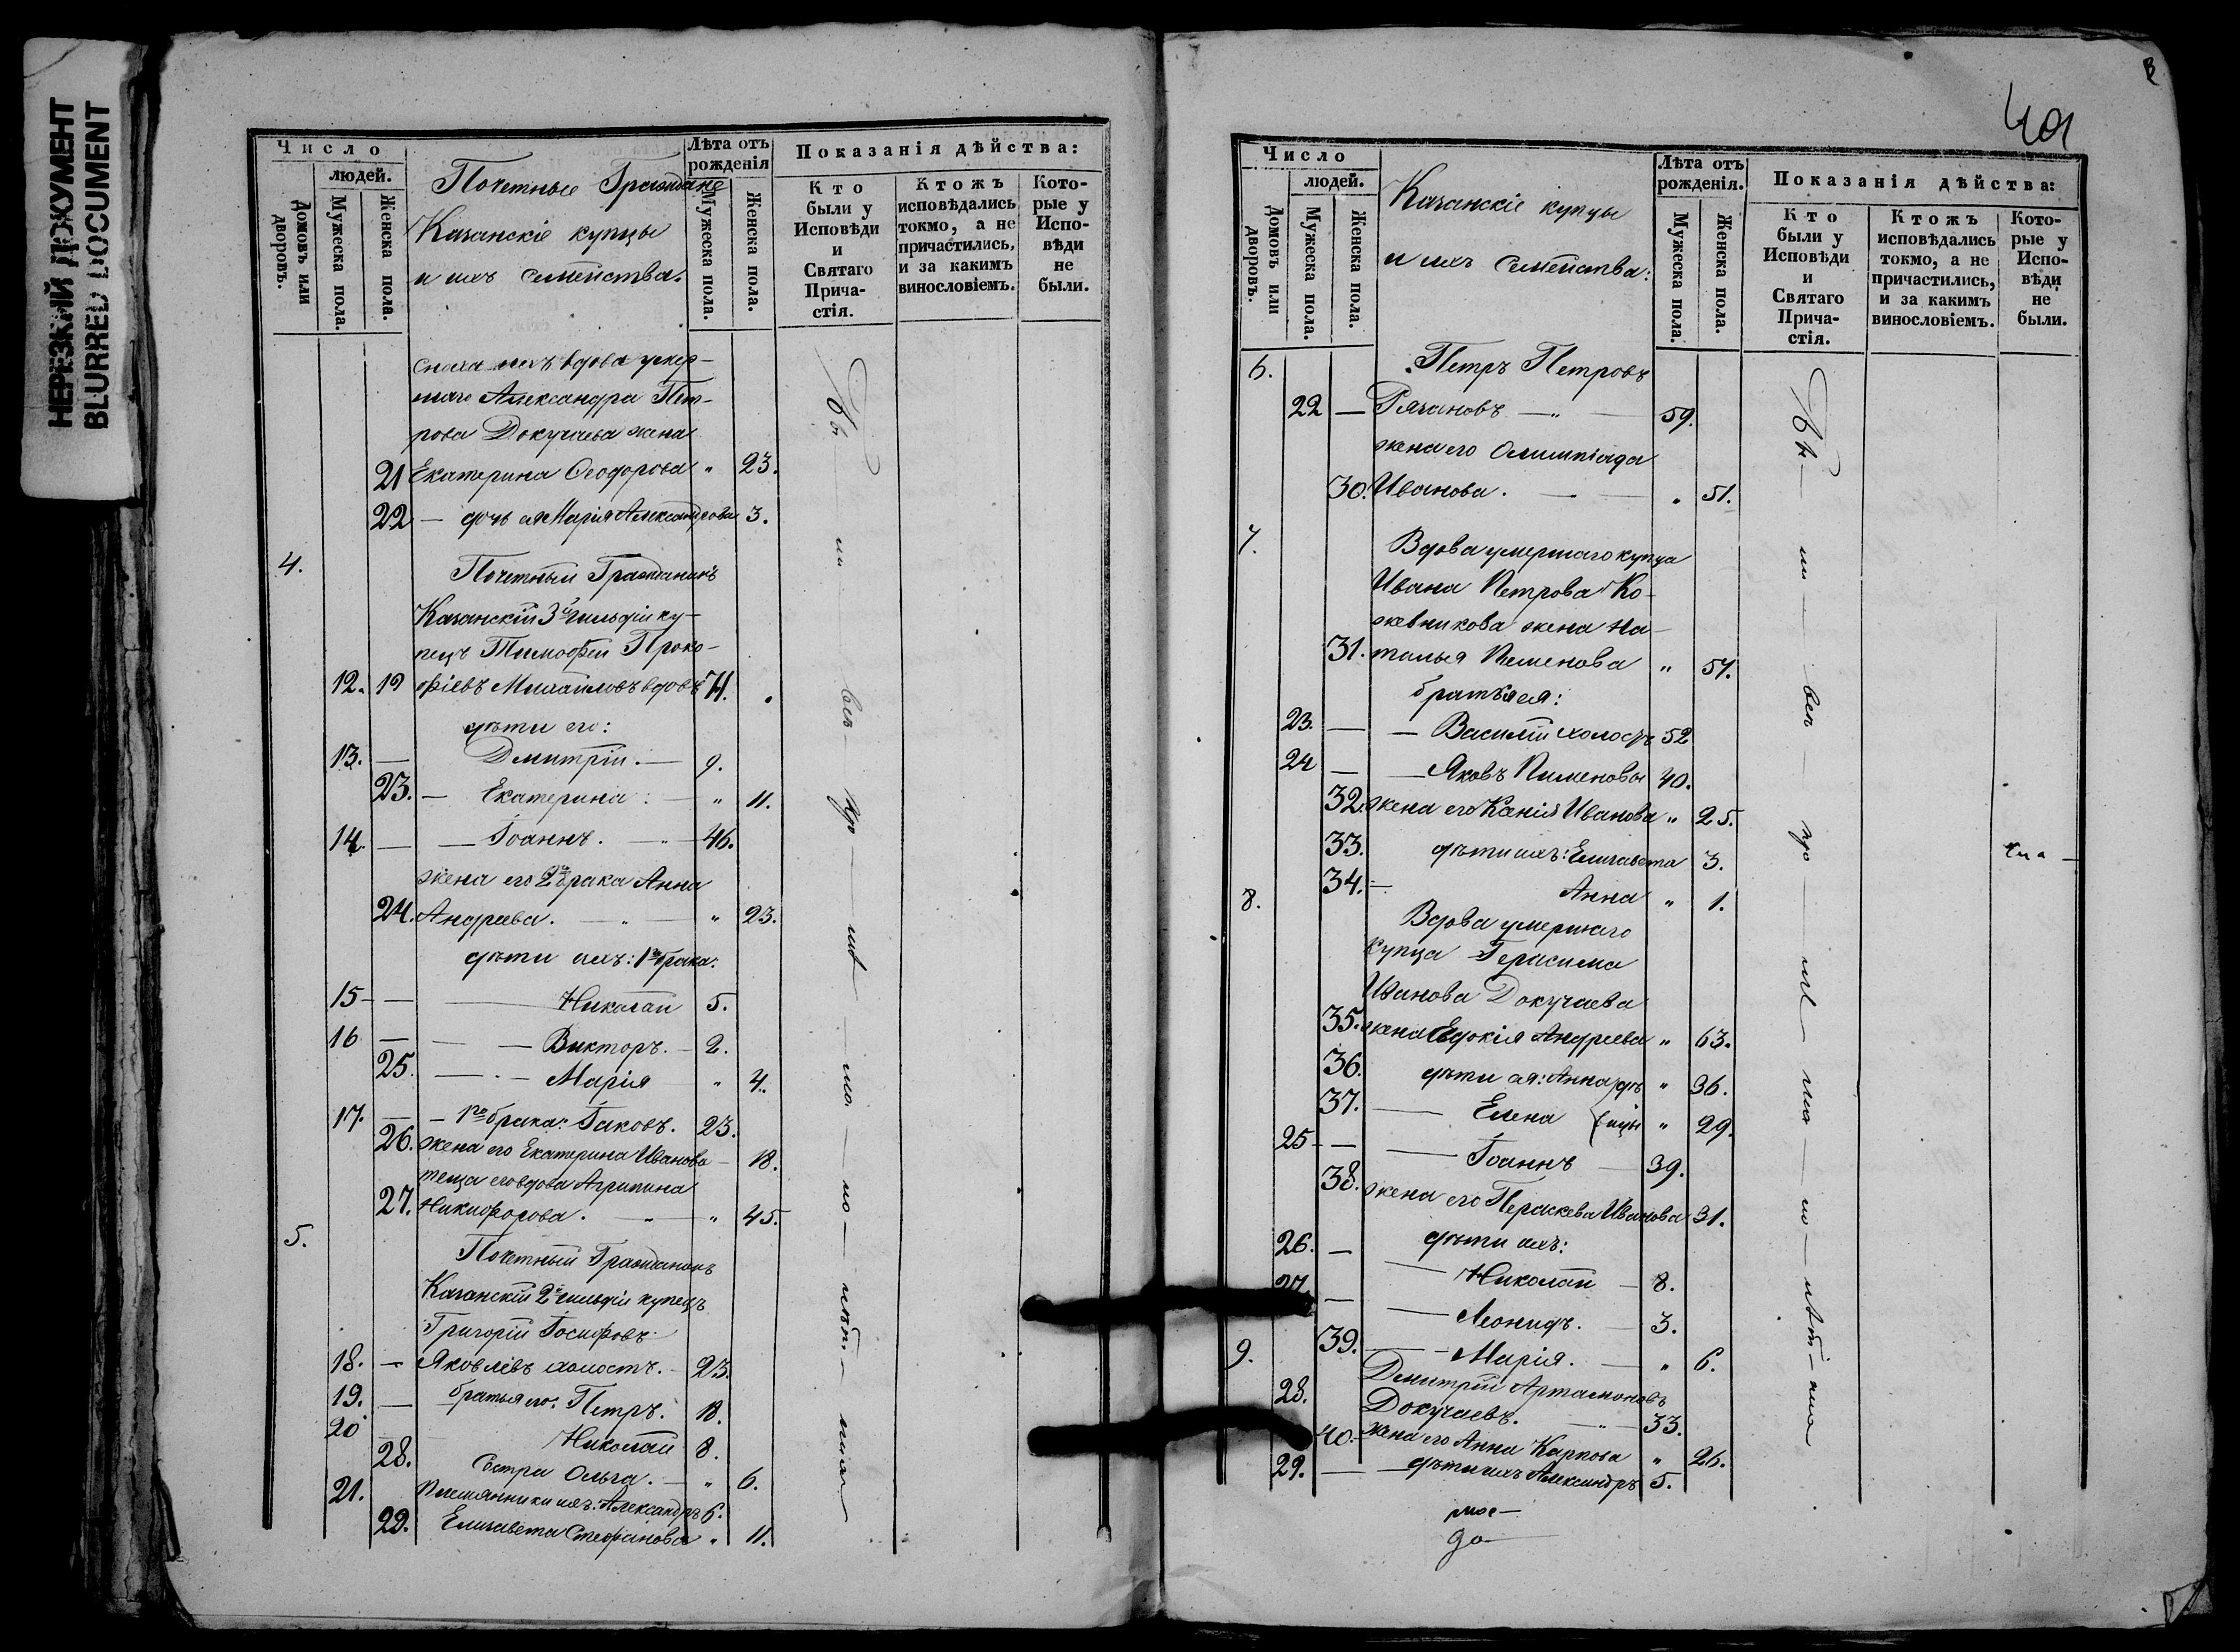 НЕРЕЗКИЙ ДОКУМЕНТ
BLURRED DOCUMENT
Число
людей.
Домовъ или дворовъ.
Мужеска пола.
Женска пола.
Почетные Граждане
Казанскіе купцы
и ихъ семейства.
Лѣта отъ рожденія
Мужеска пола.
Женска пола.
Показанія дѣйства:
Кто были у Исповѣди и Святаго Прича-стія.
Ктожъ исповѣдались токмо, а не причастились, и за какимъ винословіемъ.
Кото-рые у Испо-вѣди не были.
сноха ихъ вдова умер-
шаго Александра Пет-
рова Докучаева жена
21 Екатерина Ѳеодорова " 23.
22 — дочь ея Марія Александрова 3.
4.
Почетный Гражданинъ
Казанскій 3й гильдіи ку-
пецъ Тимоѳей Проко-
12. 19 фіевъ Михайловъ вдовъ 71.
дѣти его:
13. — Дмитрій. — 9.
23. — Екатерина. — " 11.
14. — — Іоаннъ. — " — 46.
жена его 2го брака Анна
24. Андреева. — " — " 23.
дѣти ихъ: 1го брака:
15 — — Николай 5.
16 — — — Викторъ. — 2.
25. — — Марія " 4.
17. — — 1го брака: Іаковъ. 23.
26. жена его Екатерина Иванова — 18.
теща его вдова Агрипина
27. Никифорова. — " — " 45.
5.
Почетный Гражданинъ
Казанскій 2й гильдіи купецъ
Григорій Іосифовъ
18. — Яковлевъ холостъ. — 23.
19. — братья его: Петръ. 18.
20 Николай 8.
28. Сестра Ольга. — " 6.
21. Племянники ихъ: Александръ 6.
29. Елизавета Стефанова " 11.
401
Число
людей.
Домовъ или дворовъ.
Мужеска пола.
Женска пола.
Казанскіе купцы
и ихъ семейства:
Лѣта отъ рожденія.
Мужеска пола.
Женска пола.
Показанія дѣйства:
Кто были у Исповѣди и Святаго Прича-стія.
Ктожъ исповѣдались токмо, а не причастились, и за какимъ винословіемъ.
Кото-рые у Испо-вѣди не были.
6.
Петръ Петровъ
22 — Рязановъ — " — 59.
жена его Олимпіада
30. Иванова. — — " 51.
7.
Вдова умершаго купца
Ивана Петрова Ко-
жевникова жена На-
31. талья Пименова " 57.
братья ея:
23. — — Василій холостъ 52
24 — — Яковъ Пименовы 40.
32. жена его Ксенія Иванова " 25.
33. дѣти ихъ: Елизавета 3.
34. — Анна " 1.
8.
Вдова умершаго
купца Герасима
Иванова Докучаева
35. жена Евдокія Андреева " 63.
36. дѣти ея: Анна дѣ " 36.
37. — Елена вицы " 29.
25 — — Іоаннъ — 39.
38. жена его Параскева Иванова 31.
дѣти ихъ:
26. — — Николай — 8.
27. — — Леонидъ. — 3.
39. — Марія. — " 6.
9.
Дмитрій Артамоновъ
28. Докучаевъ. — " — 33.
40. жена его Анна Карпова " 26.
29. — — дѣти ихъ Александръ 5.